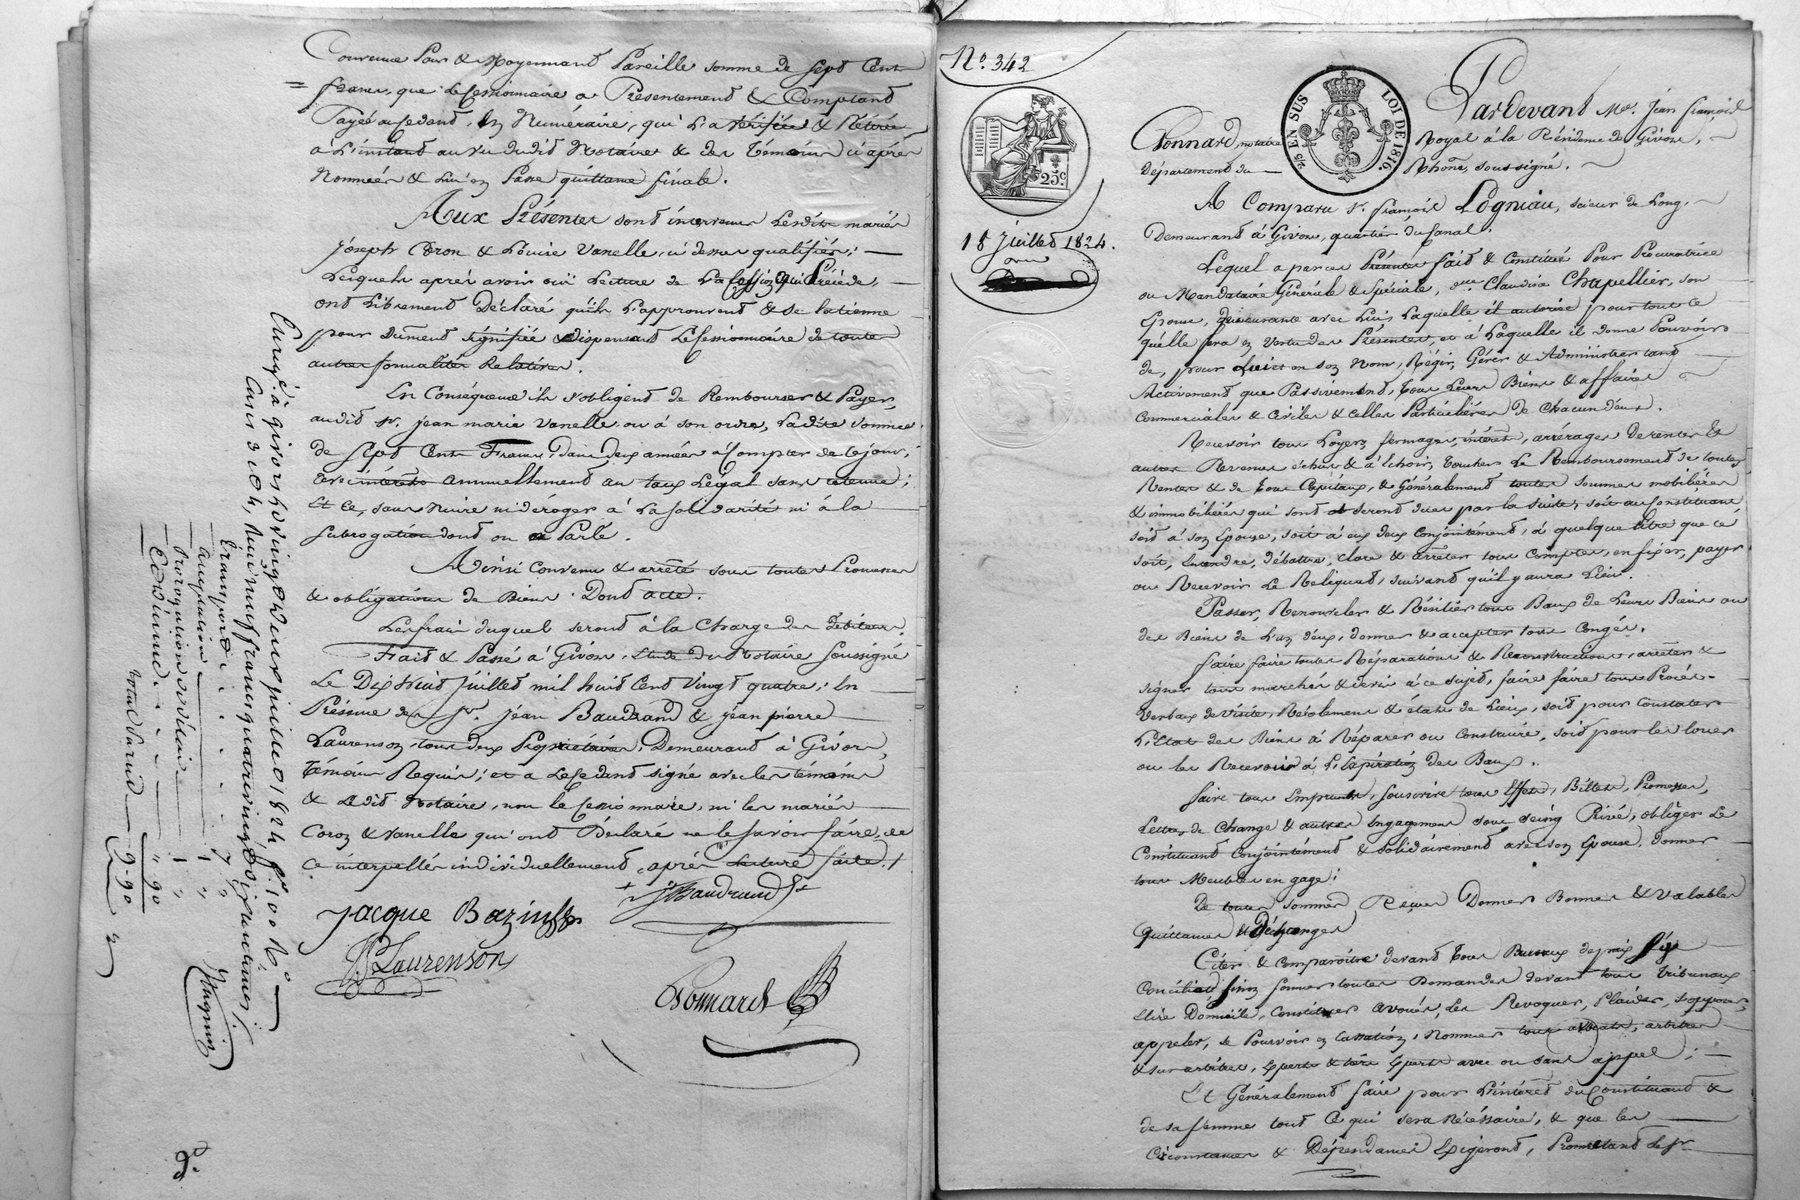 Convenue Pour & Moyennant Pareille somme de Sept Cent
francs, que le Cessionnaire a Présentement & Comptant
Payée au Cedant, en Numéraire, qui l'a vérifiée & Retirée
à l'instant au vu dudit Notaire & des témoins ci après
Nommés & lui en Passe quittance finale.
Aux Présentes sont intervenus lesdits mariés
Joseph Coron & Louise Vanelle, ci dessus qualifiés ;
Lesquels après avoir ouï Lecture de la Cession qui Précède,
ont Librement Déclaré qu'ils l'approuvent & se la tienne
pour Dument signifiée & dispensant le Cessionnaire de toutes
autres formalités Relatives.
En Conséquence ils s'obligent de Rembourser & Payer
audit Sr. jean marie Vanelle, ou à son ordre, ladite Somme
de Sept Cent Francs, dans deux années à Compter de ce jour ;
les intérêts annuellement au taux Légal sans retenue ;
Et ce, sans Nuire ni déroger à la Solidarité ni à la
Subrogation dont on a Parlé.
Ainsi Convenu & arrêté sous toutes Promesses
& obligations de Biens. Dont acte.
Les frais duquel seront à la Charge des débiteurs.
Fait & Passé à Givors, Etude du Notaire Soussigné
Le Dix huit Juillet mil huit Cent Vingt quatre ; En
Présence des Srs. Jean Baudrand & jean pierre
Laurenson, tous deux Propriétaires, Demeurant à Givors,
témoins Requis ; et a Le Cedant signé avec les témoins
& Ledit Notaire, non le Cessionnaire, ni les mariés
Coron & Vanelle qui ont Déclaré ne le savoir faire, de
ce interpellés individuellement, après lecture faite./
Jacque Bazin
J Baudrand
JP Laurenson
Bonnard
Enregé à givors le vingt deux juillet 1824, fo 100 Ro
Case 3 et 4, Reçu neuf francs quatre vingt dix centimes /.
Transport 7 "
Acceptation 1 "
Prorogation de délai 1 "
Décime " 90
Total Pareil 9-90
Nº. 342
25 c
18 Juillet 1824.
2/5 EN SUS LOI DE 1816
Pardevant Me. Jean François
Bonnard, notaire Royal à la Résidence de Givors,
Département du Rhône, soussigné.
A Comparu Sr. François Logniau, scieur de long,
Demeurant à Givors, quartier du Canal.
Lequel a par ces Présentes fait & Constitué Pour Procuratrice
ou Mandataire Générale & spéciale, dme Claudine Chapellier, son
Epouse, demeurante avec lui, Laquelle il autorise pour tout ce
qu'elle fera en vertu des Présentes, et à Laquelle il donne Pouvoirs
de, pour lui et en son Nom, Régir, Gérer & Administrer tant
Activement que Passivement, tous leurs Biens & affaires
Commerciales & Civiles & celles Particulières de Chacun d'eux.
Recevoir tous Loyers, fermages, intérêts, arrérages de rentes Et
autres Revenus échus & à Echoir, toucher Le Remboursement de toutes
Rentes & de tous Capitaux, & Généralement toutes sommes mobilières
& immobilières qui sont ou seront dues par la suite, soit au Constituant
soit à son Epouse, soit à eux deux Conjointement, à quelque titre que ce
soit, Entendre, Débattre, Clore & arrêter tous Comptes, en fixer, payer
ou Recevoir Le Reliquat, suivant qu'il y aura Lieu.
Passer, Renouveler & Résilier tous Baux de Leurs Biens ou
des Biens de l'un d'eux, donner & accepter tous Congés.
faire faire toutes Réparations & Reconstructions, arrêter &
signer tous marchés & devis à ce sujet, faire faire tous Procès-
Verbaux de Visite, Récolement & états de Lieux, soit pour Constater
L'Etat des Biens à Réparer ou Construire, soit pour les louer
ou les Recevoir à l'Expiration des Baux.
faire tous Emprunts, souscrire tous Effets, Billets, Promesses,
Lettres de Change & autres Engagements sous seing Privé, obliger Le
Constituant Conjointement & solidairement avec son Epouse, donner
tous Meubles en gage ;
De toutes sommes Reçues Donner Bonnes & Valables
quittances & Décharges
Citer & Comparoitre devant tous Bureaux de paix s'y
Concilier sinon former toutes Demandes devant tous tribunaux
Elire Domicile, Constituer avoués, les Révoquer, Plaider, s'opposer,
appeler, se Pourvoir en Cassation, Nommer tous avocats, arbitres
& sur arbitres, Experts & tiers Experts avec ou sans appel ;
Et Généralement faire pour l'intérêt du Constituant &
de sa femme tout Ce qui sera nécessaire, & que les
Circonstances & Dépendances Exigeront, Promettant Le Sr